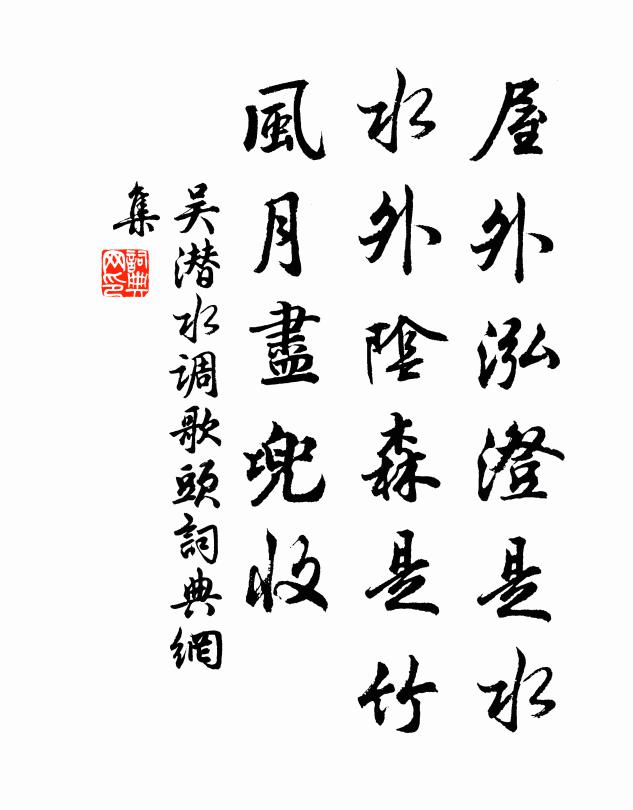 屋外泓澄是水
水外陰森是竹
風月盡兜收
吴潜水调歌頭詞典網
集
詞典网印